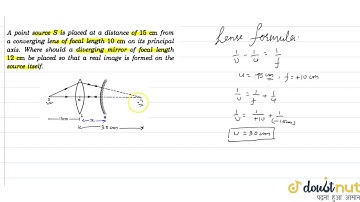 A point source S is placed at a distance of 15 cm from
a converging lens of focal length 10 cm on its principal
axis. Where should a diverging mirror of focal length
12 cm be placed so that a real image is formed on the
source itself.
Lense formula:
1/v - 1/u = 1/f
u = -15 cm, f = +10 cm
1/v = 1/f + 1/u
1/v = 1/+10 + 1/(-15cm)
v = 30 cm
15cm
x
30cm
doubtnut
पढ़ना हुआ आसान